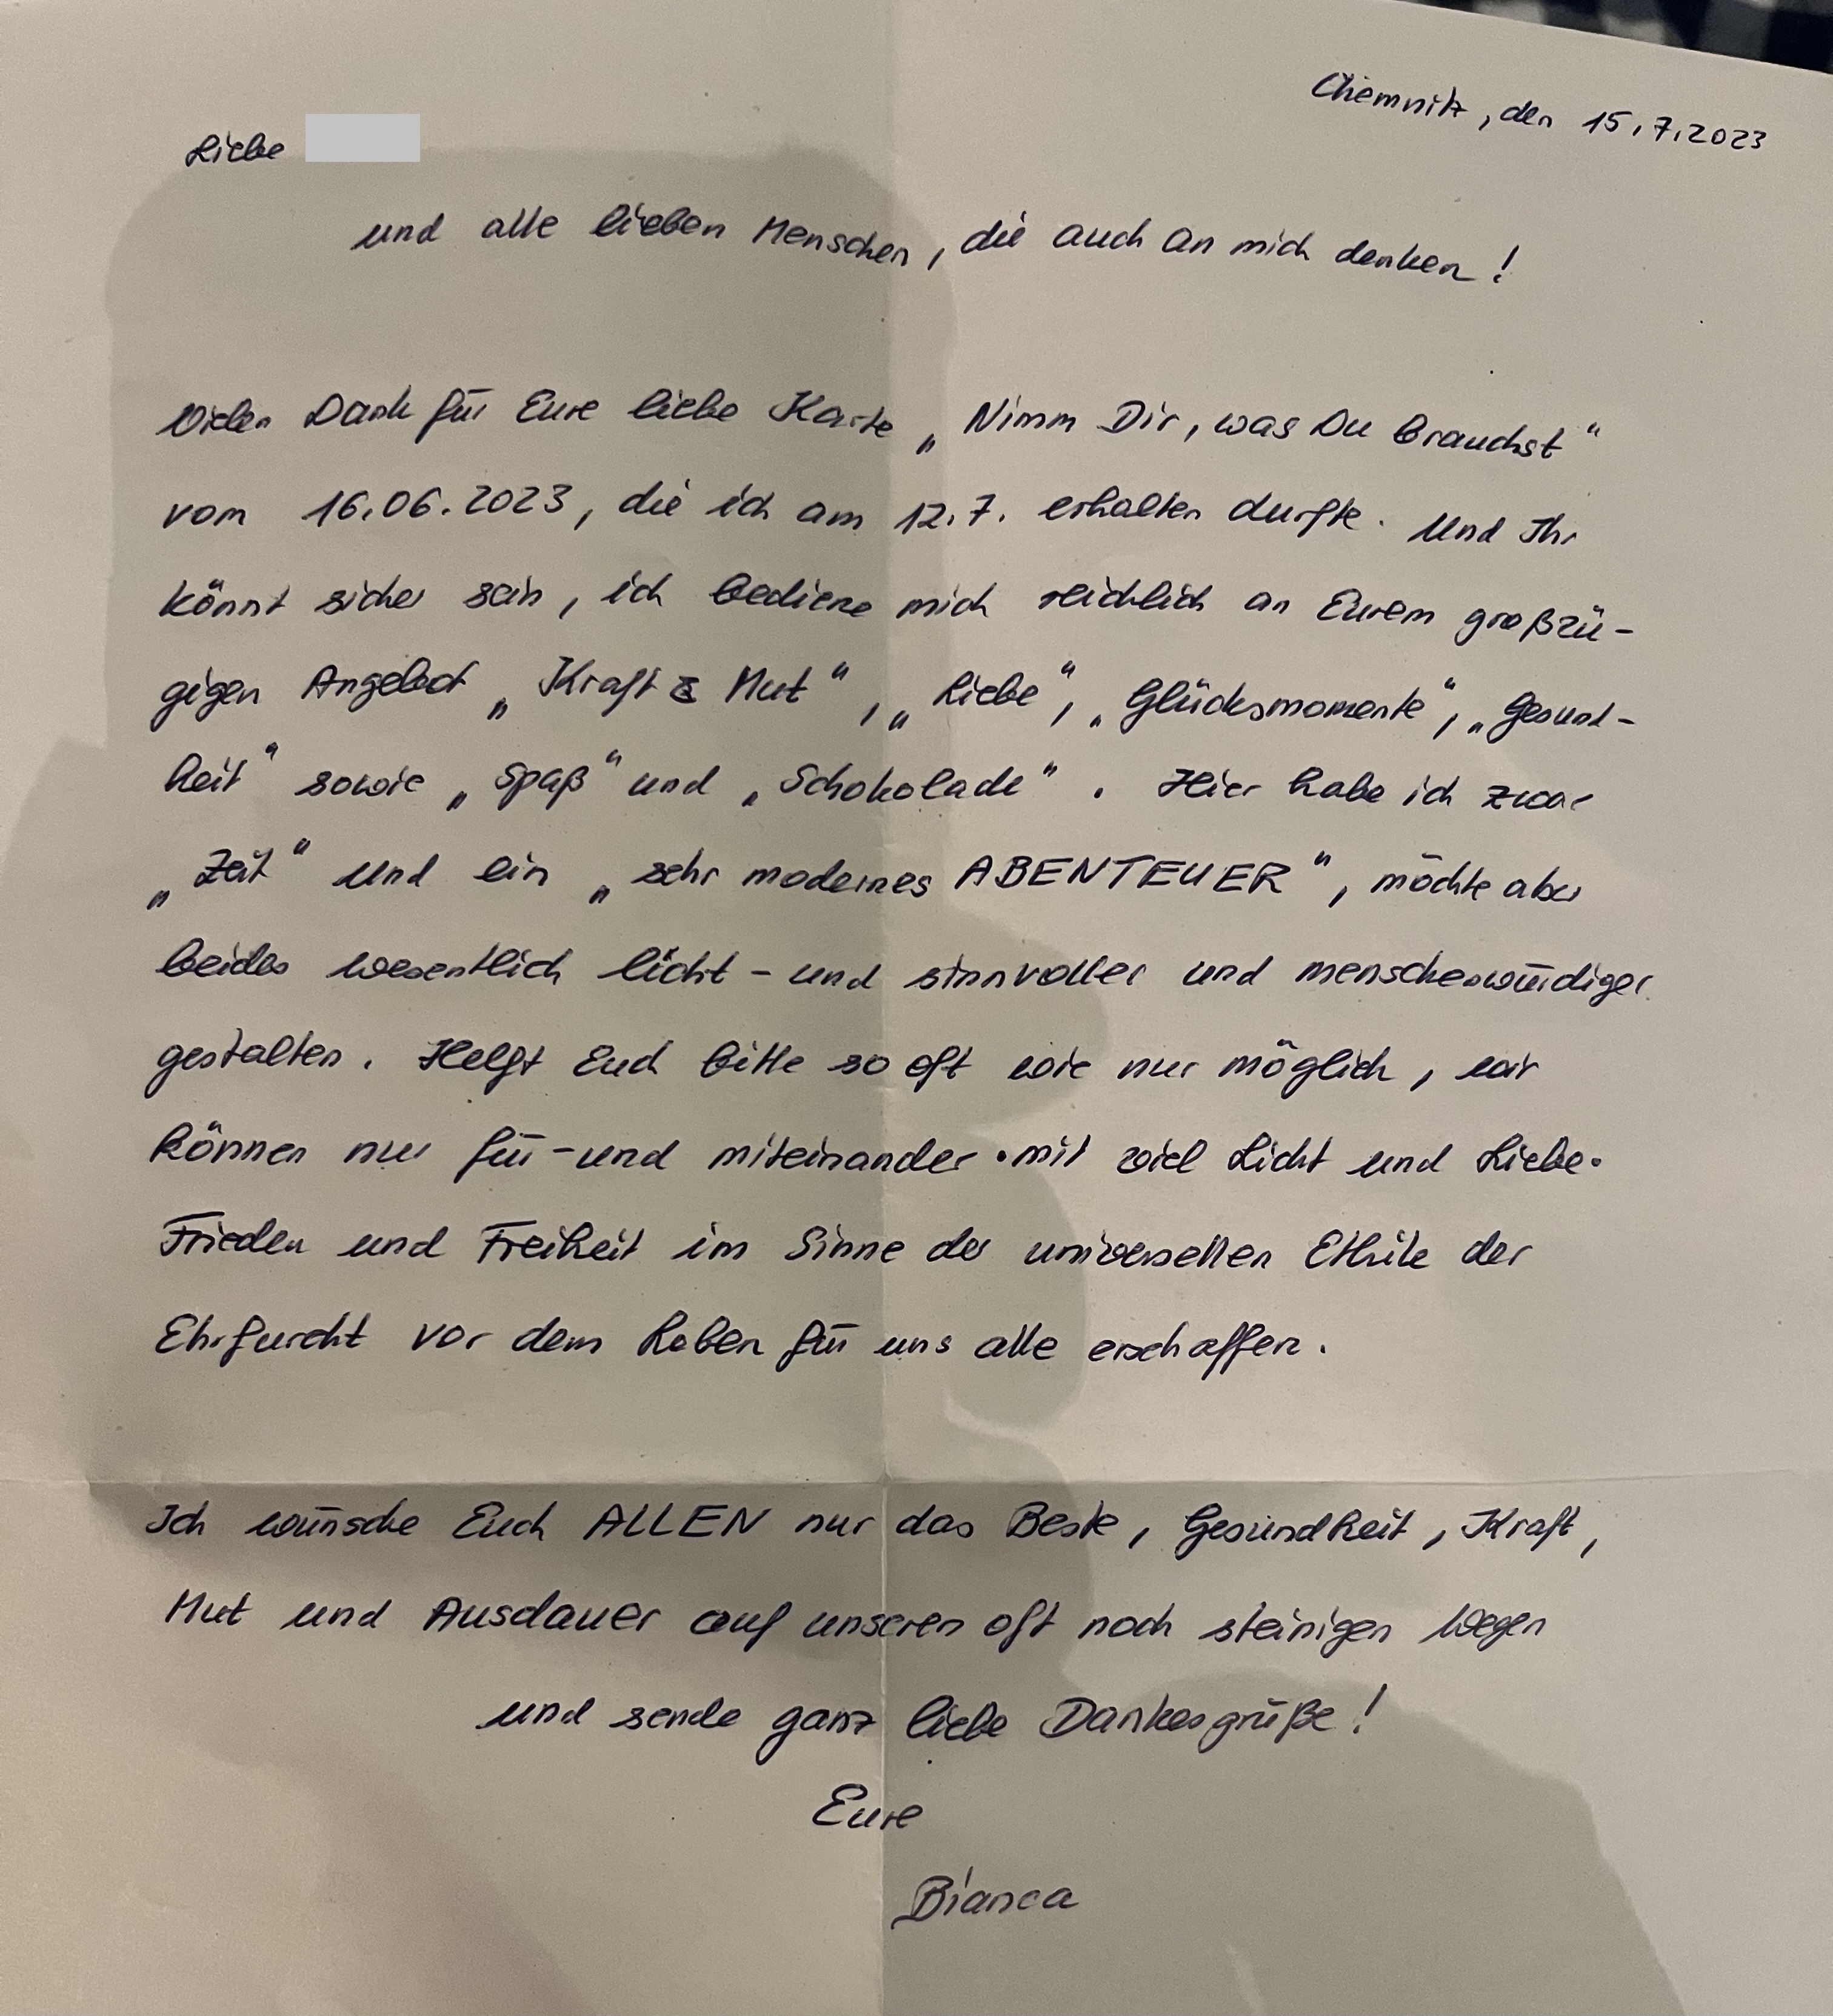 Chemnitz, den 15.7.2023
Liebe
und alle lieben Menschen, die auch an mich denken!
Vielen Dank für Eure liebe Karte „Nimm Dir, was Du brauchst“
vom 16.06.2023, die ich am 12.7. erhalten durfte. Und Ihr
könnt sicher sein, ich bediene mich reichlich an Eurem großzü-
gigen Angebot „Kraft & Mut“, „Liebe“, „Glücksmomente“, „Gesund-
heit“ sowie „Spaß“ und „Schokolade“. Hier habe ich zwar
„Zeit“ und ein „sehr modernes ABENTEUER“, möchte aber
beides wesentlich licht- und sinnvoller und menschenwürdiger
gestalten. Helft Euch bitte so oft wie nur möglich, wir
können nur für- und miteinander • mit viel Licht und Liebe •
Frieden und Freiheit im Sinne der universellen Ethik der
Ehrfurcht vor dem Leben für uns alle erschaffen.
Ich wünsche Euch ALLEN nur das Beste, Gesundheit, Kraft,
Mut und Ausdauer auf unseren oft noch steinigen Wegen
und sende ganz liebe Dankesgrüße!
Eure
Bianca